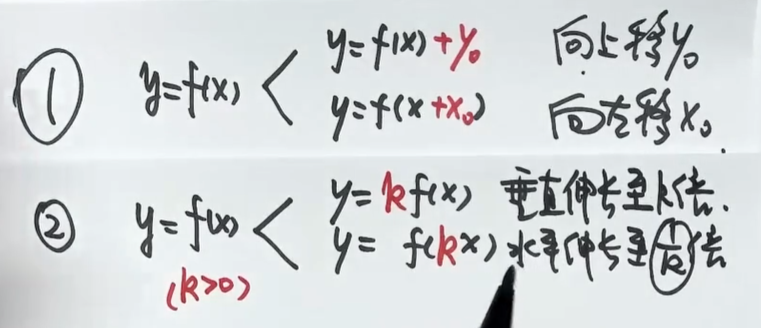 ① y=f(x) < y=f(x)+y₀ 向上移y₀
y=f(x+x₀) 向左移x₀.
② y=f(x) < y=kf(x) 垂直伸长至k倍.
(k>0) y= f(kx) 水平伸长至1/k倍